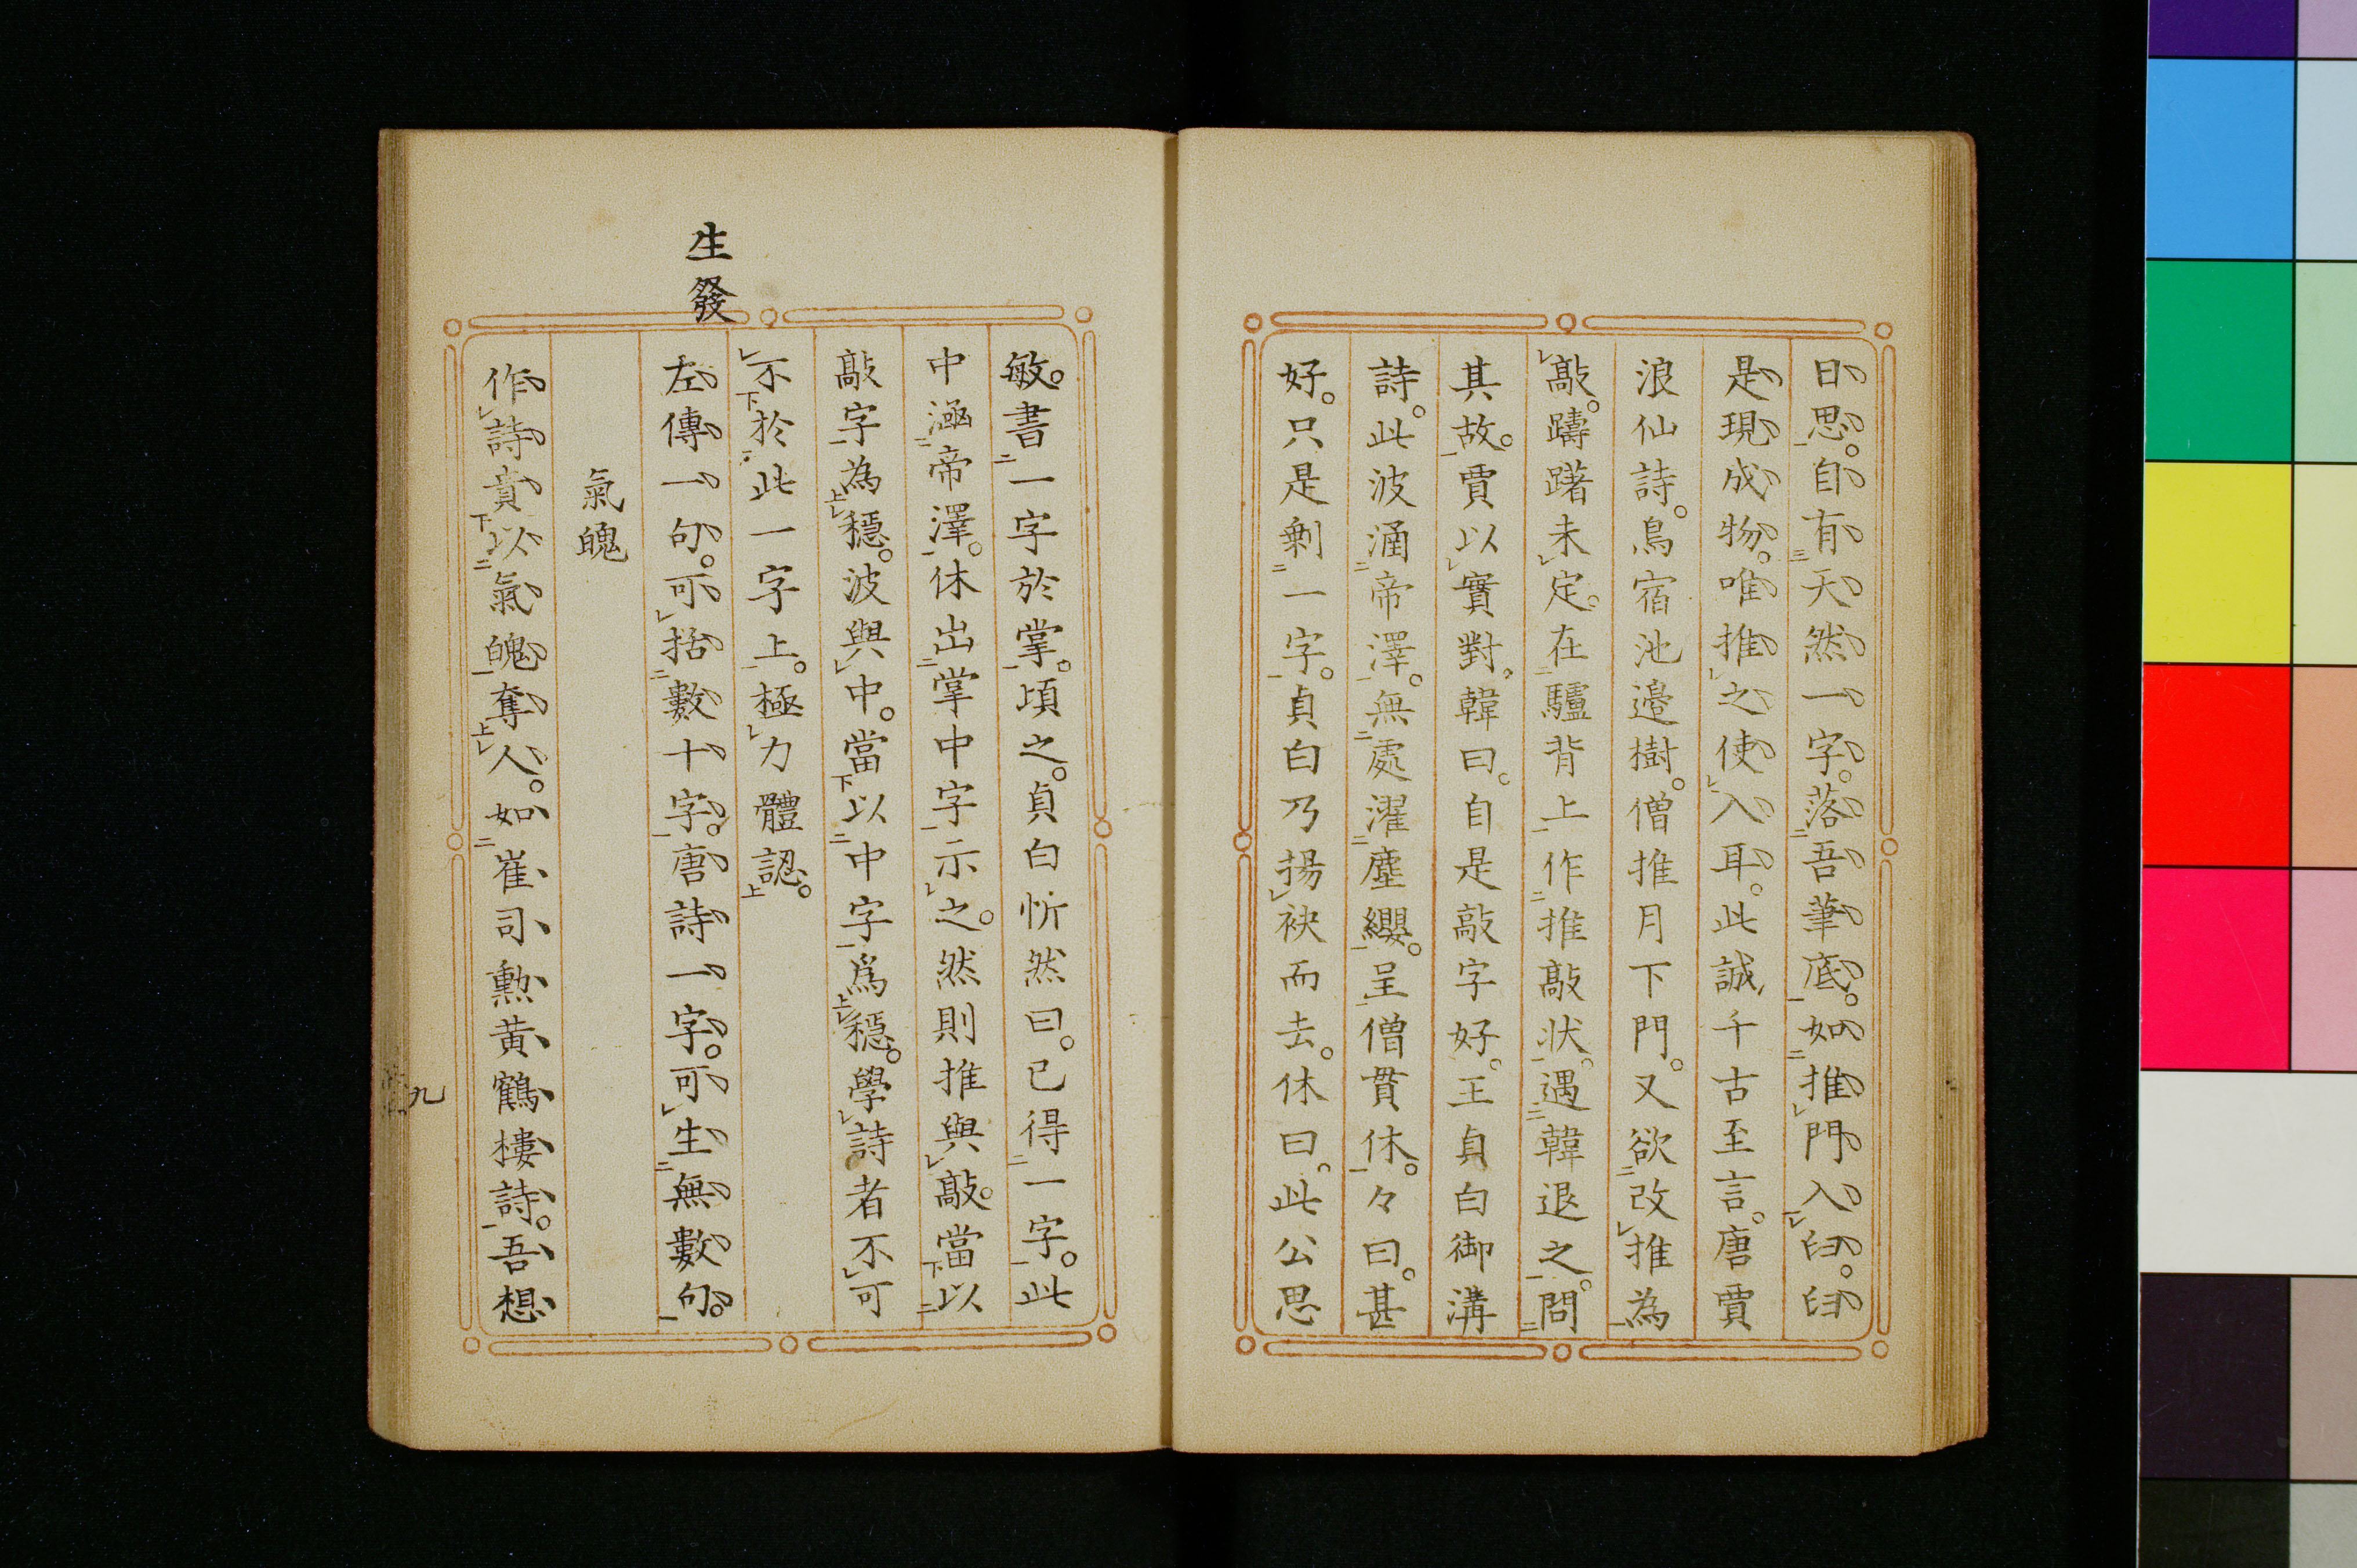 日思。自有天然一字。落吾筆底。如推門入臼。臼
是現成物。唯推之使入耳。此誠千古至言。唐賈
浪仙詩。鳥宿池邉樹。僧推月下門。又欲改推為
敲。躊躇未定。在驢背上作推敲状。遇韓退之。問
其故。賈以實對。韓曰。自是敲字好。王貞白御溝
詩。此波涵帝澤。無處濯塵纓。呈僧貫休。々曰。甚
好。只是剰一字。貞白乃揚袂而去。休曰。此公思
敏。書一字於掌。頃之。貞白忻然曰。已得一字。此
中涵帝澤。休出掌中字示之。然則推與敲。當以
敲字為穏。波與中。當以中字爲穏。學詩者不可
不於此一字上。極力體認。
生發
左傳一句。可括數十字。唐詩一字。可生無數句。
氣魄
作詩貴以氣魄奪人。如崔司勲黄鶴樓詩。吾想
九